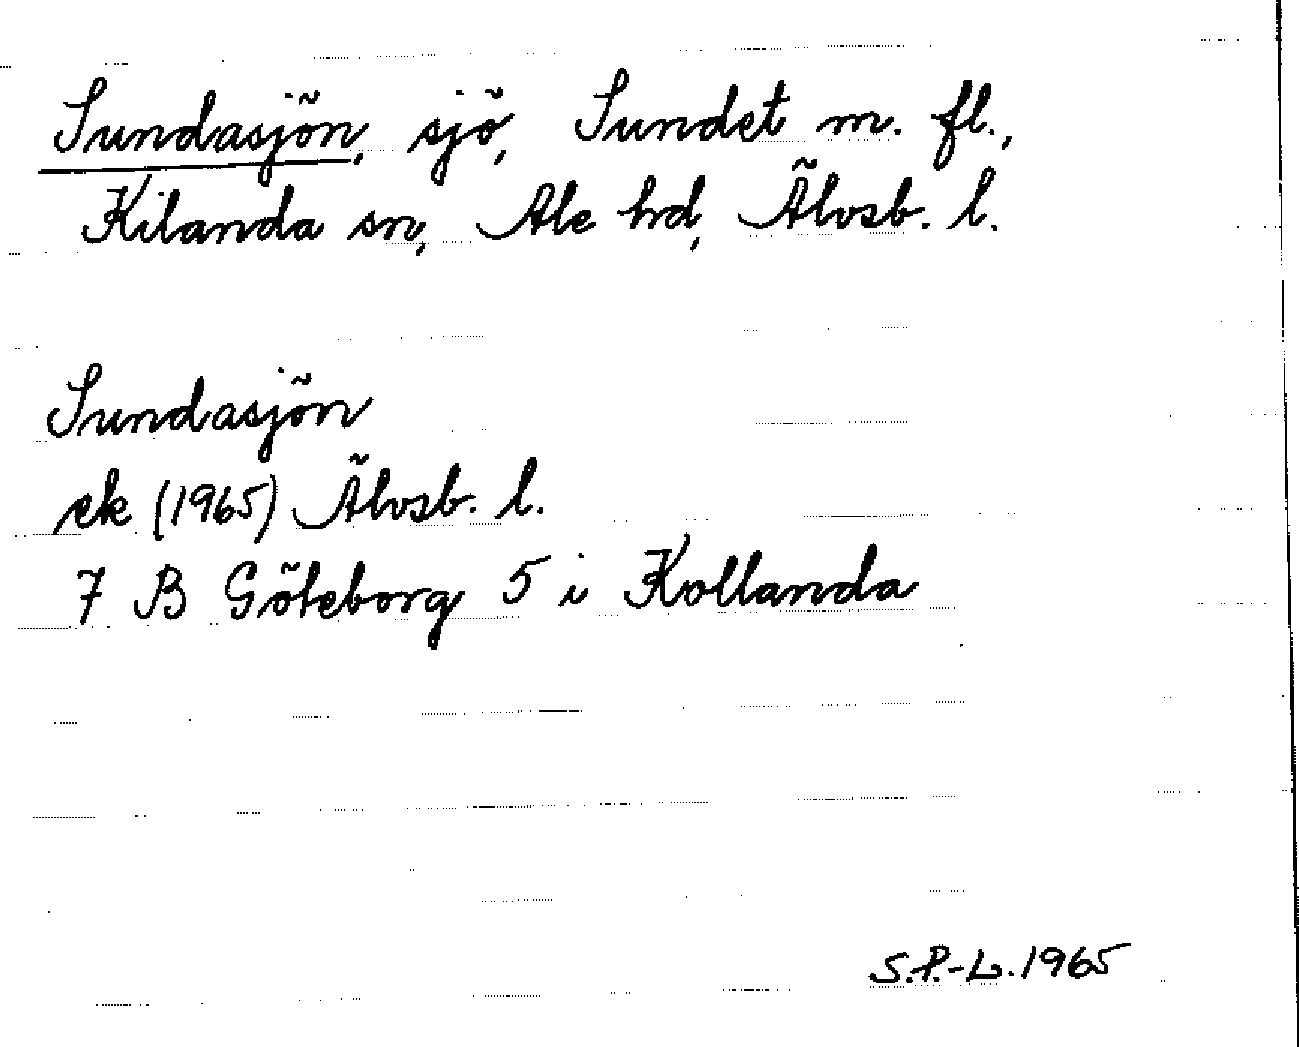 Sundasjön, sjö, Sundet m. fl.,
Kilanda sn, Ale hd, Älvsb. l.
Sundasjön
ek (1965) Älvsb. l.
7 B Göteborg 5 i Kollanda
S.P.-L. 1965